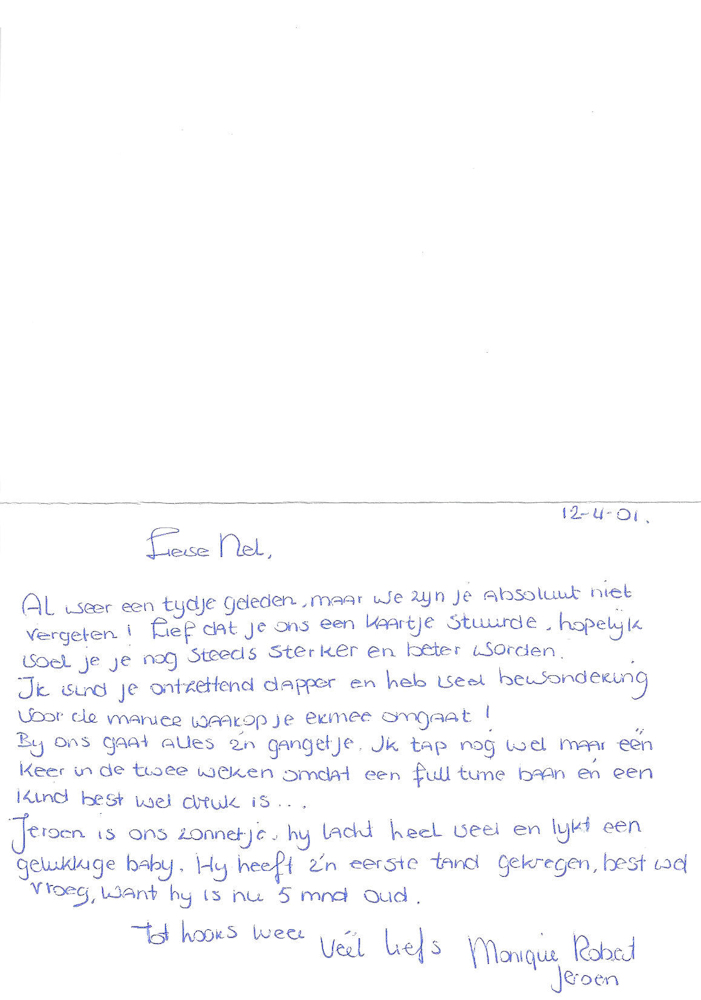 12-4-01.
Lieve Nel,
Al weer een tydje geleden, maar we zyn je absoluut niet
vergeten! Lief dat je ons een kaartje stuurde, hopelijk
voel je je nog steeds sterker en beter worden.
Ik vind je ontzettend dapper en heb veel bewondering
voor de manier waarop je ermee omgaat!
By ons gaat alles z'n gangetje. Ik tap nog wel maar één
keer in de twee weken omdat een full time baan én een
kind best wel druk is...
Jeroen is ons zonnetje, hy lacht heel veel en lykt een
gelukkige baby. Hy heeft z'n eerste tand gekregen, best wel
vroeg, want hy is nu 5 mnd oud.
Tot hoors weer
Véél liefs Monique Robert
Jeroen